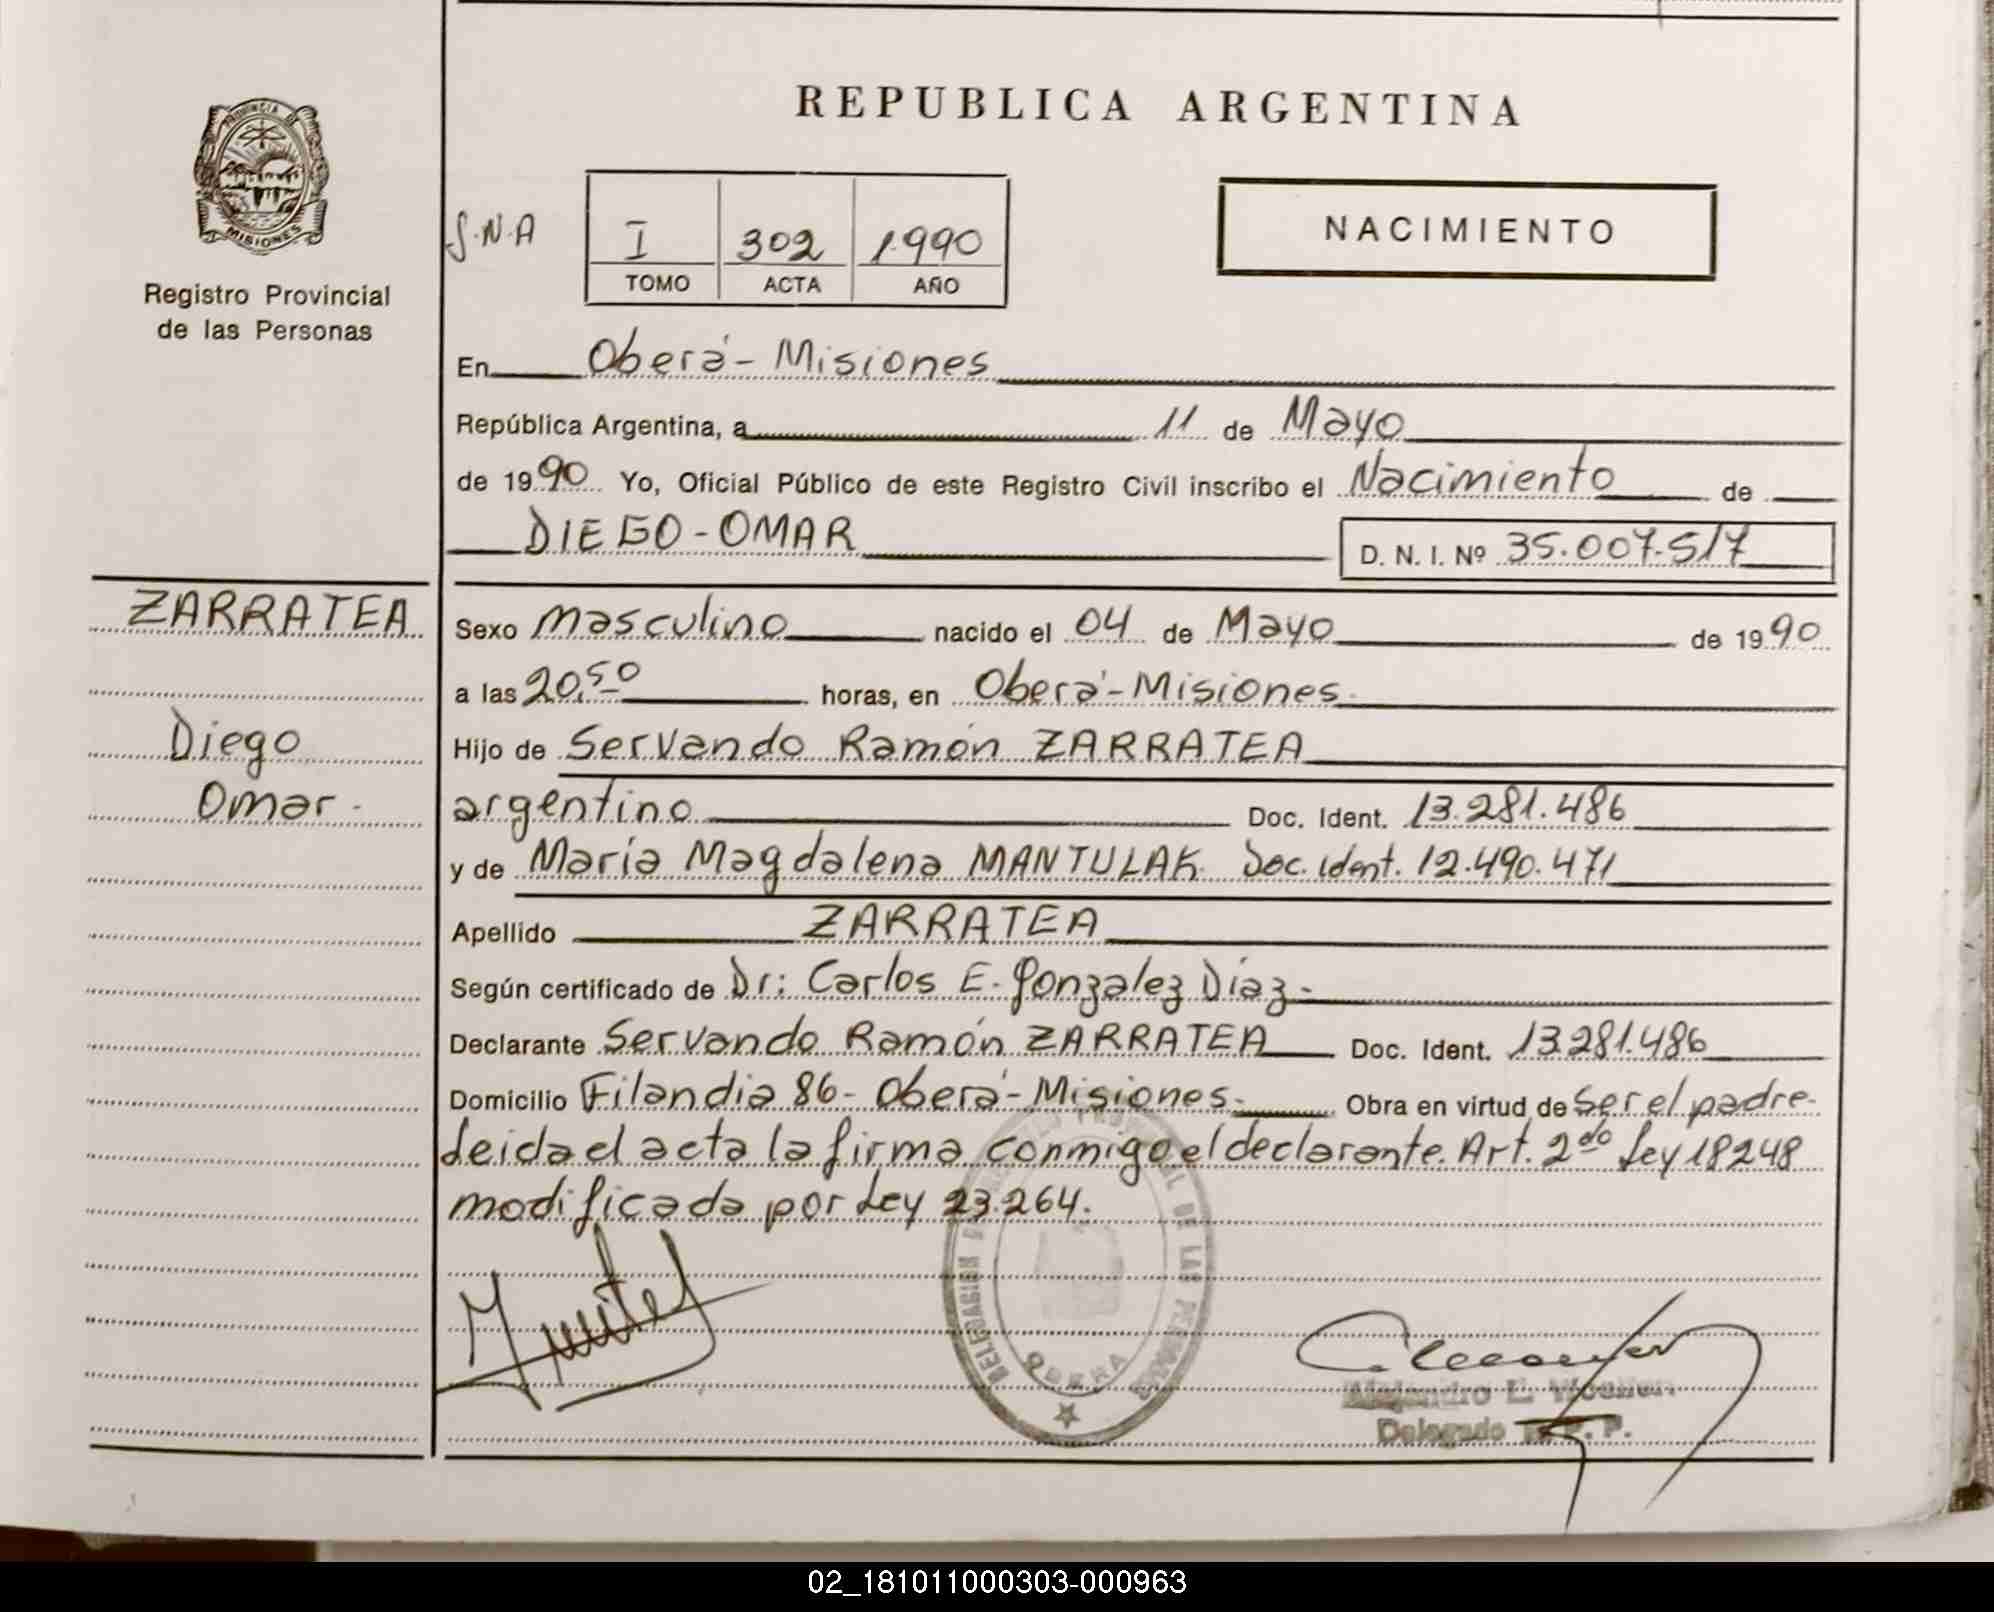 REPUBLICA ARGENTINA
PROVINCIA DE
MISIONES
Registro Provincial
de las Personas
S.N.A
I 302 1.990
TOMO ACTA AÑO
NACIMIENTO
En Oberá - Misiones
República Argentina, a 11 de Mayo
de 1990 Yo, Oficial Público de este Registro Civil inscribo el Nacimiento de
DIEGO - OMAR D. N. I. Nº 35.007.517
ZARRATEA
Diego
Omar.
Sexo masculino nacido el 04 de Mayo de 1990
a las 20,50 horas, en Oberá - Misiones.
Hijo de Servando Ramón ZARRATEA
argentino Doc. Ident. 13.281.486
y de María Magdalena MANTULAK Doc. ident. 12.490.471
Apellido ZARRATEA
Según certificado de Dr: Carlos E. Gonzalez Díaz.
Declarante Servando Ramón ZARRATEA Doc. Ident. 13281.486
Domicilio Filandia 86 - Oberá - Misiones. Obra en virtud de ser el padre.
Leida el acta la firma conmigo el declarante. Art. 2do Ley 18248
modificada por Ley 23.264.
DELEGACION DE LAS PERSONAS
OBERA
Alejandro E.
Delegado R. P. P.
02_181011000303-000963